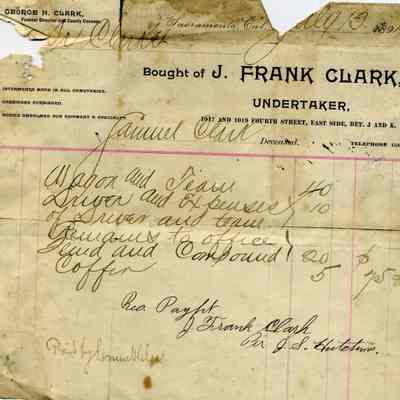 GEORGE H. CLARK,
Funeral Director and County Coroner
Sacramento, Cal. July 13 189
Clark
Bought of J. FRANK CLARK,
UNDERTAKER,
INTERMENTS MADE IN ALL CEMETERIES.
1017 AND 1019 FOURTH STREET, EAST SIDE, BET. J AND K.
Samuel Clark
Deceased.
TELEPHONE
Wagon and Team 40
Driver and expenses
of Driver and team 10
Remains to office
Fluid and Compound 20 $
Coffin 5 75
Rec Paymt
J Frank Clark
Per J. S. Hutchins.
Paid by